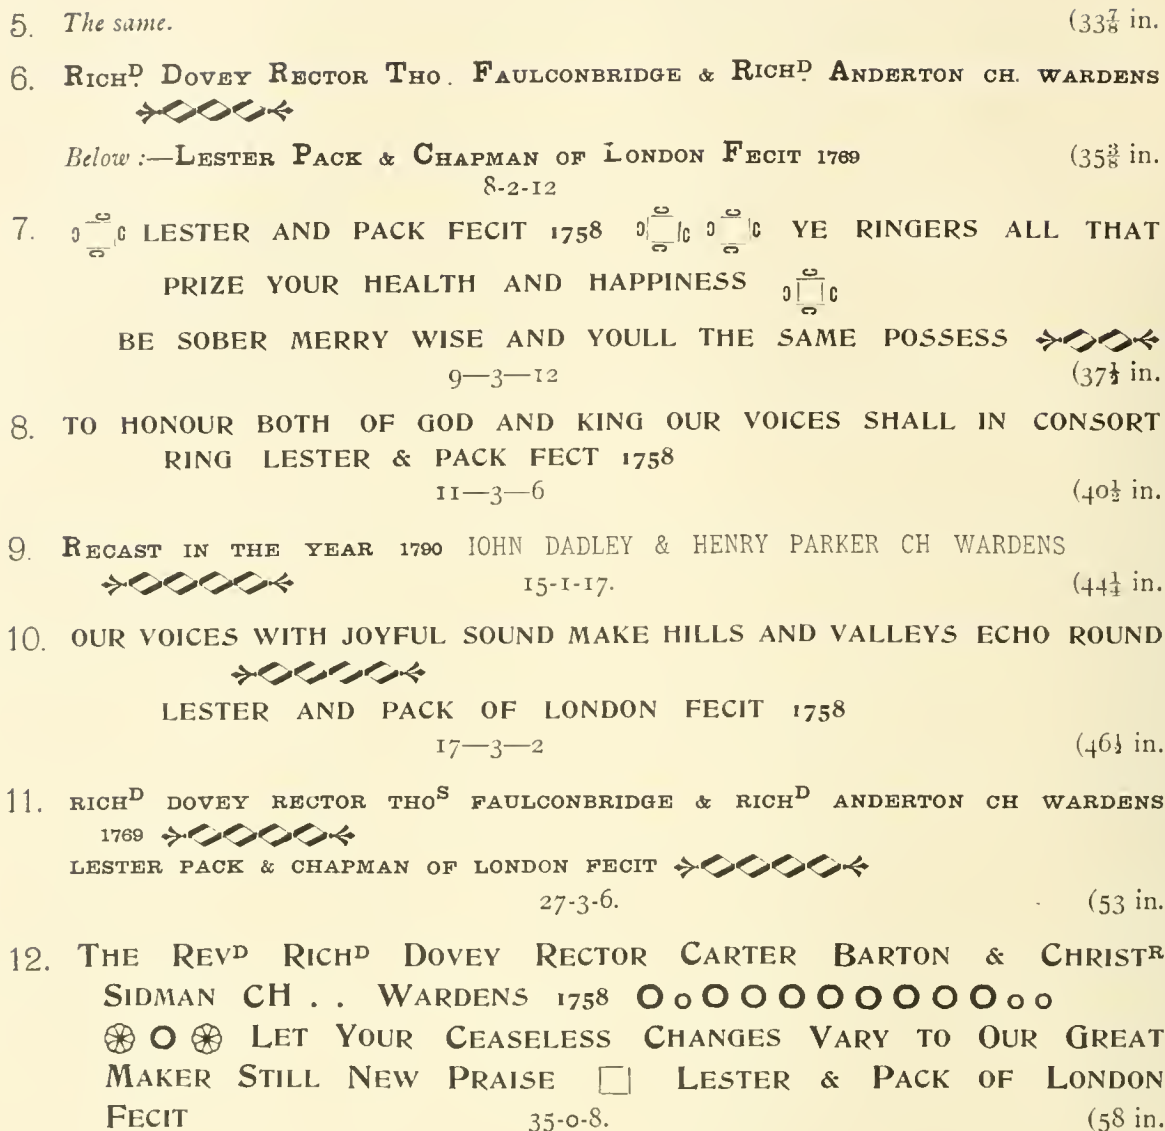 5. The same. (33⅞ in.
6. RICHD. DOVEY RECTOR THO. FAULCONBRIDGE & RICHD. ANDERTON CH. WARDENS
Below :—LESTER PACK & CHAPMAN OF LONDON FECIT 1769 (35⅜ in.
8-2-12
7. LESTER AND PACK FECIT 1758 YE RINGERS ALL THAT
PRIZE YOUR HEALTH AND HAPPINESS
BE SOBER MERRY WISE AND YOULL THE SAME POSSESS
9—3—12 (37½ in.
8. TO HONOUR BOTH OF GOD AND KING OUR VOICES SHALL IN CONSORT
RING LESTER & PACK FECT 1758
11—3—6 (40½ in.
9. RECAST IN THE YEAR 1790 IOHN DADLEY & HENRY PARKER CH WARDENS
15-1-17. (44¼ in.
10. OUR VOICES WITH JOYFUL SOUND MAKE HILLS AND VALLEYS ECHO ROUND
LESTER AND PACK OF LONDON FECIT 1758
17—3—2 (46½ in.
11. RICHD DOVEY RECTOR THOS FAULCONBRIDGE & RICHD ANDERTON CH WARDENS
1769
LESTER PACK & CHAPMAN OF LONDON FECIT
27-3-6. (53 in.
12. THE REVD RICHD DOVEY RECTOR CARTER BARTON & CHRISTR
SIDMAN CH . . WARDENS 1758
LET YOUR CEASELESS CHANGES VARY TO OUR GREAT
MAKER STILL NEW PRAISE LESTER & PACK OF LONDON
FECIT 35-0-8. (58 in.